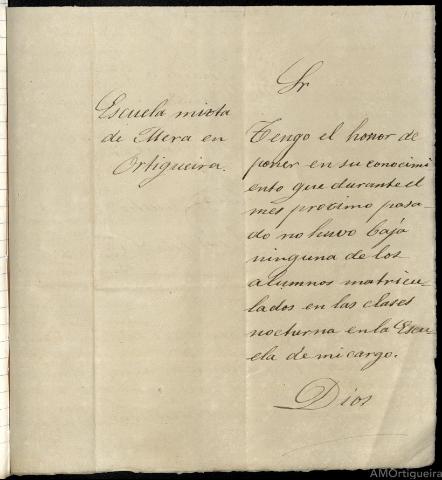 Escuela mixta
de Mera en
Ortigueira.
Sr
Tengo el honor de
poner en su conocimi
ento que durante el
mes proximo pasa-
do no huvo baja
ninguna de los
alumnos matricu-
lados en las clases
nocturna en la Escu
ela de mi cargo.
Dios
AMOrtigueira